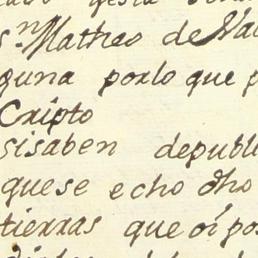 Sn. Matheo de Na
guna porlo que p
Cripto
sisaben depubli
quese echo dho
tierras que oi pos